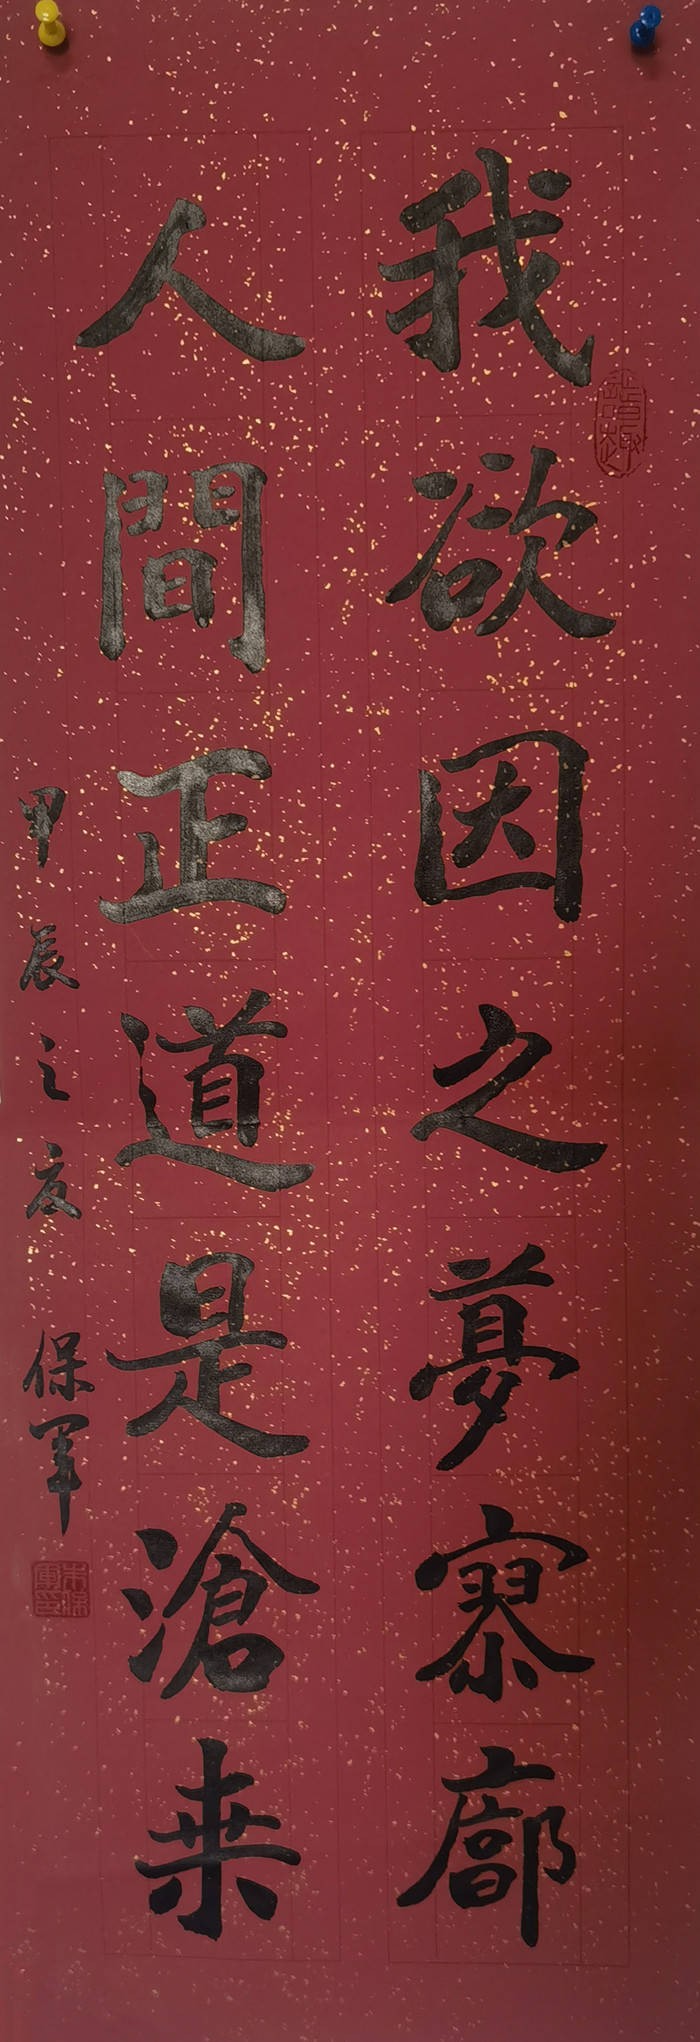 我欲因之夢寥廓
人間正道是滄桒
甲辰之夏 保军